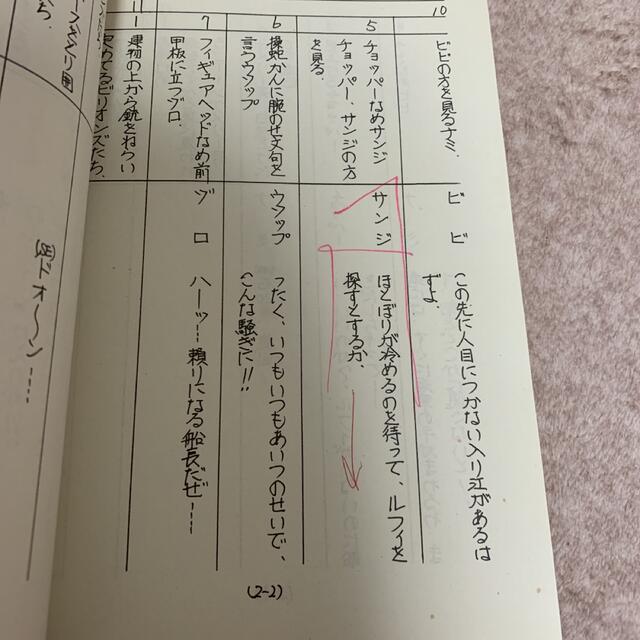 10
ビビの方を見るナミ、
ビビ
この先に人目につかない入り江があるは
ずよ、
5
チョッパーなめサンジ
チョッパー、サンジの方
を見る、
サンジ
ほとぼりが冷めるのを待って、ルフィを
探すとするか、
6
操舵かんに腕のせ文句を
言うウソップ
ウソップ
ったく、いつもいつもあいつのせいで、
こんな騒ぎに!!
7
フィギュアヘッドなめ前
甲板に立つゾロ、
ゾロ
ハーッ…頼りになる船長だぜ……
1
建物の上から銃をねらい
ビリオンズたち、
ドオ〜ン……
(2-2)